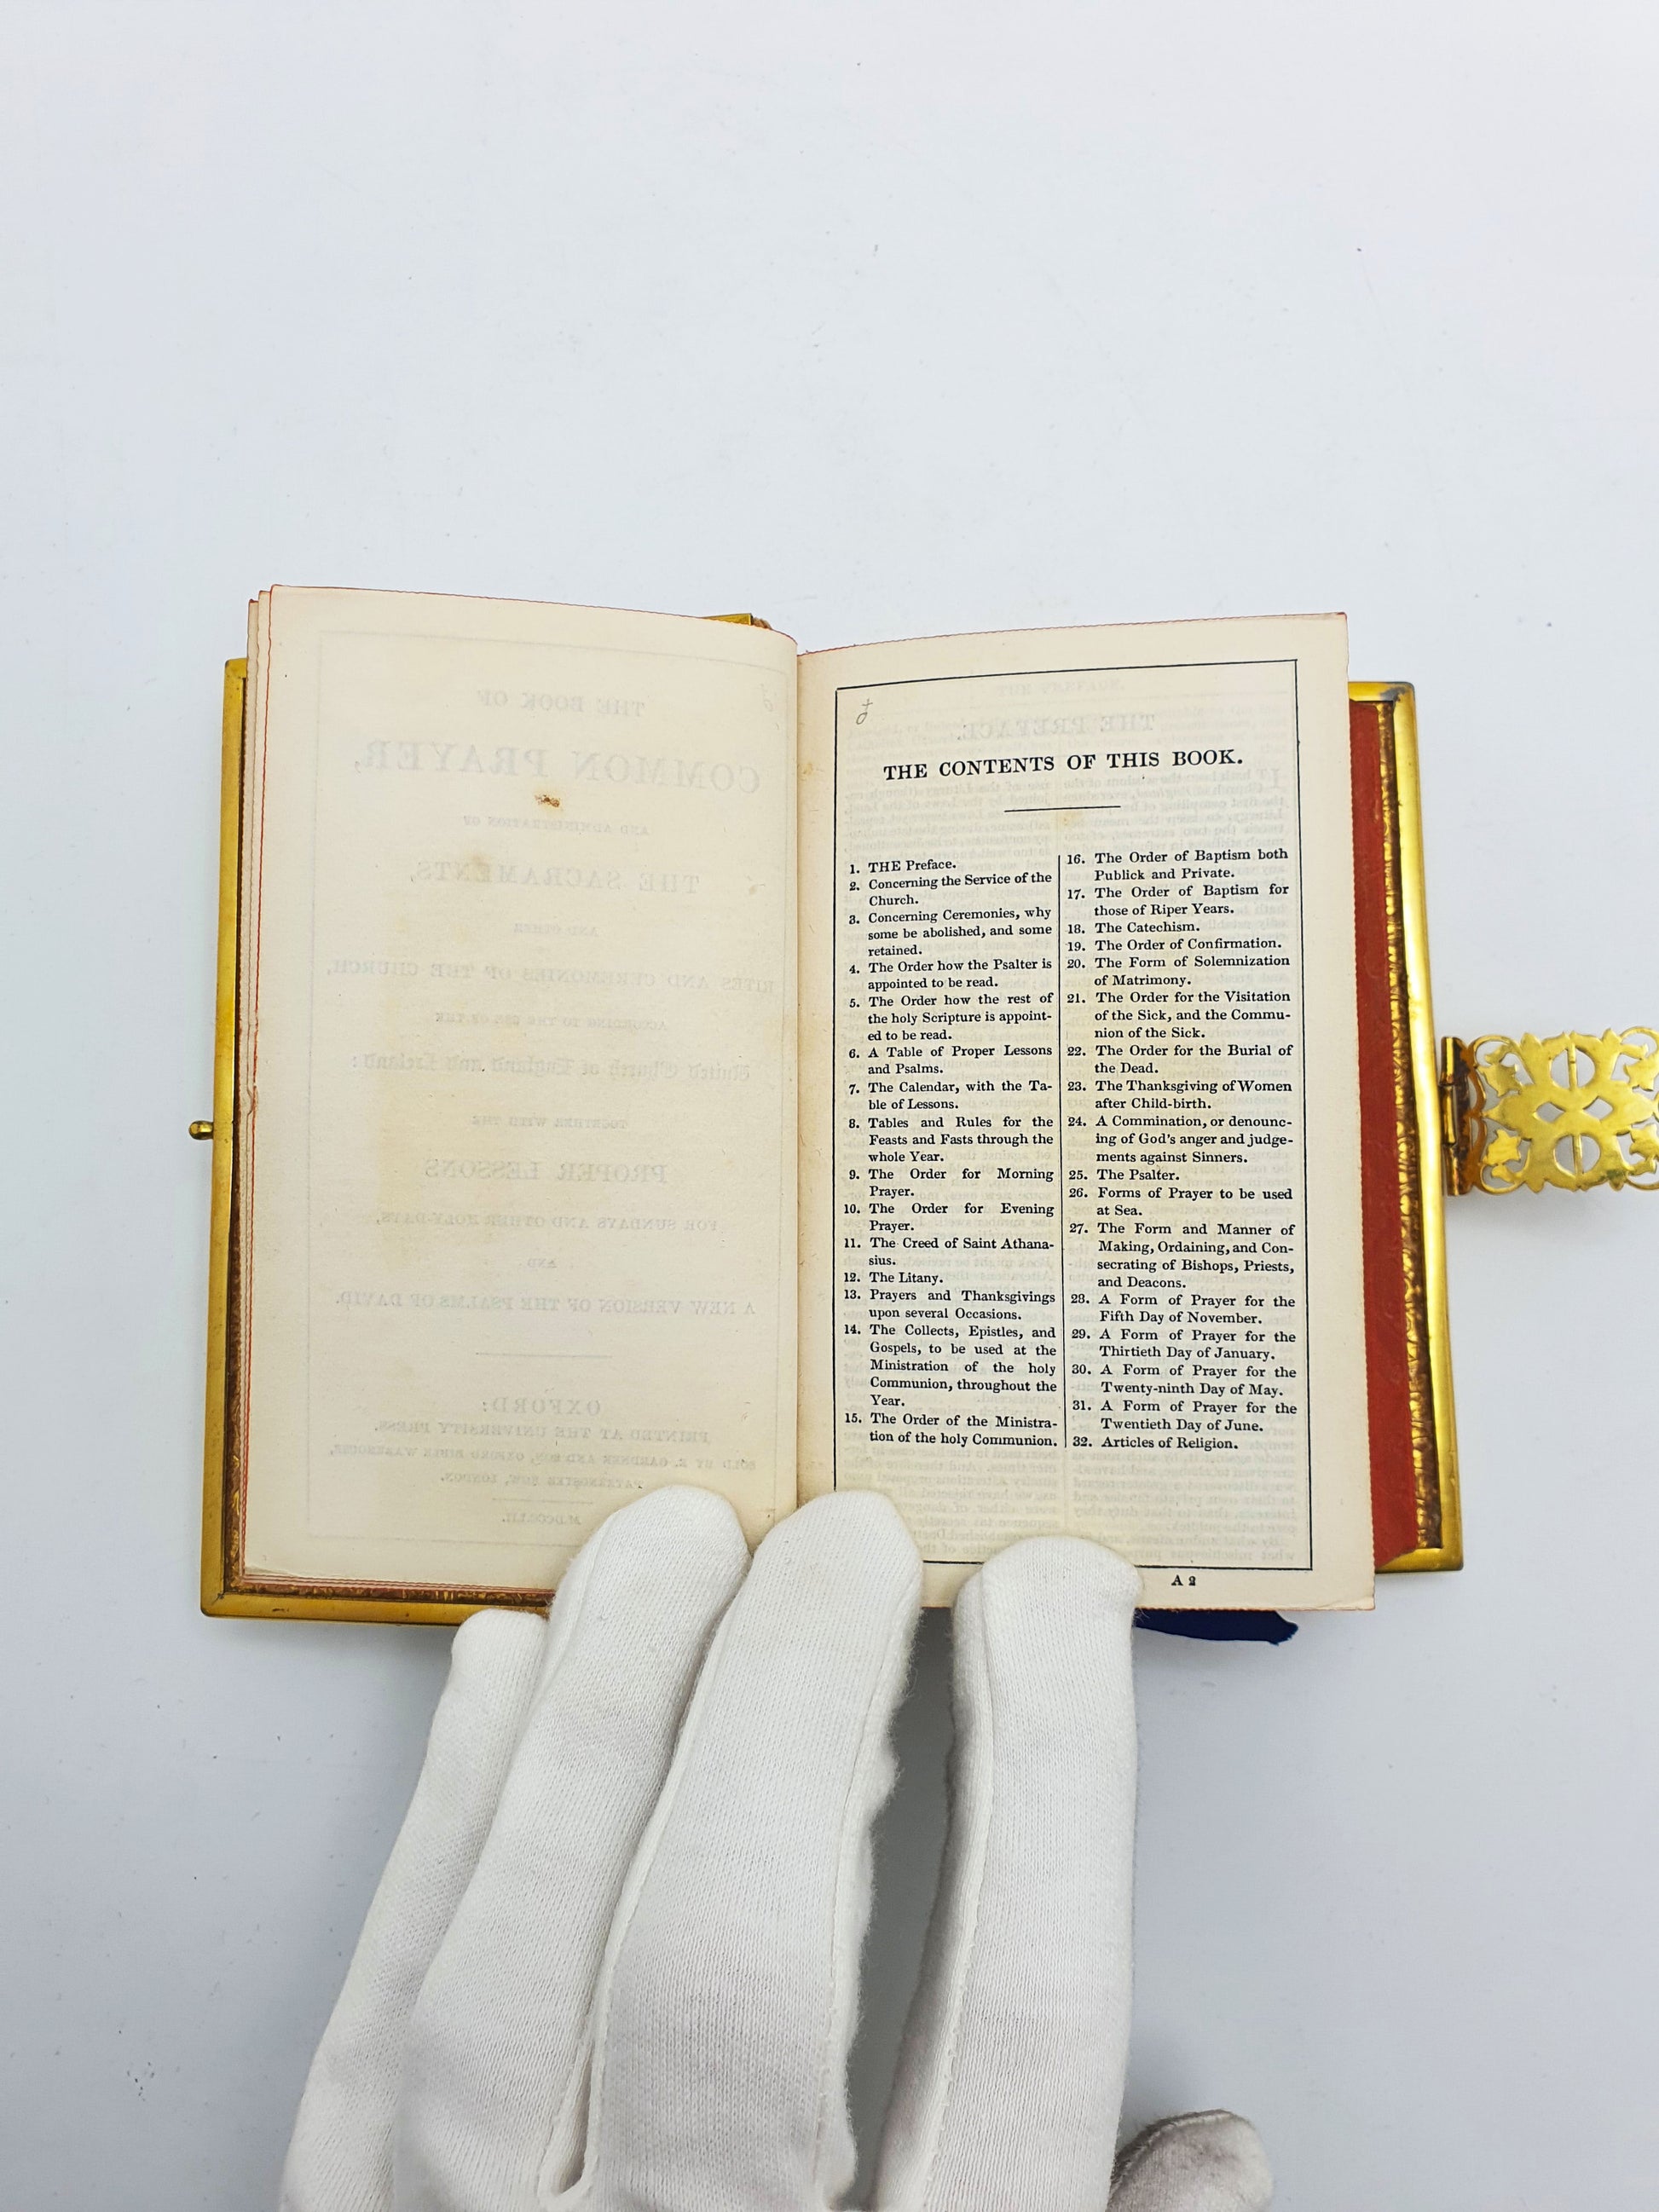 THE BOOK OF
COMMON PRAYER,
AND ADMINISTRATION OF
THE SACRAMENTS,
AND OTHER
RITES AND CEREMONIES OF THE CHURCH,
ACCORDING TO THE USE OF THE
United Church of England and Ireland:
TOGETHER WITH THE
PROPER LESSONS
FOR SUNDAYS AND OTHER HOLY-DAYS,
AND
A NEW VERSION OF THE PSALMS OF DAVID.
OXFORD:
PRINTED AT THE UNIVERSITY PRESS.
SOLD BY E. GARDNER AND SON, OXFORD BIBLE WAREHOUSE,
PATERNOSTER ROW, LONDON.
THE PREFACE.
THE CONTENTS OF THIS BOOK.
1. THE Preface.
2. Concerning the Service of the
Church.
3. Concerning Ceremonies, why
some be abolished, and some
retained.
4. The Order how the Psalter is
appointed to be read.
5. The Order how the rest of
the holy Scripture is appoint-
ed to be read.
6. A Table of Proper Lessons
and Psalms.
7. The Calendar, with the Ta-
ble of Lessons.
8. Tables and Rules for the
Feasts and Fasts through the
whole Year.
9. The Order for Morning
Prayer.
10. The Order for Evening
Prayer.
11. The Creed of Saint Athana-
sius.
12. The Litany.
13. Prayers and Thanksgivings
upon several Occasions.
14. The Collects, Epistles, and
Gospels, to be used at the
Ministration of the holy
Communion, throughout the
Year.
15. The Order of the Ministra-
tion of the holy Communion.
16. The Order of Baptism both
Publick and Private.
17. The Order of Baptism for
those of Riper Years.
18. The Catechism.
19. The Order of Confirmation.
20. The Form of Solemnization
of Matrimony.
21. The Order for the Visitation
of the Sick, and the Commu-
nion of the Sick.
22. The Order for the Burial of
the Dead.
23. The Thanksgiving of Women
after Child-birth.
24. A Commination, or denounc-
ing of God's anger and judge-
ments against Sinners.
25. The Psalter.
26. Forms of Prayer to be used
at Sea.
27. The Form and Manner of
Making, Ordaining, and Con-
secrating of Bishops, Priests,
and Deacons.
28. A Form of Prayer for the
Fifth Day of November.
29. A Form of Prayer for the
Thirtieth Day of January.
30. A Form of Prayer for the
Twenty-ninth Day of May.
31. A Form of Prayer for the
Twentieth Day of June.
32. Articles of Religion.
A 2